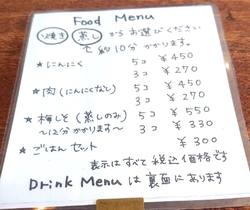 Food Menu
焼き 蒸し からお選びください
で約10分かかります。
★にんにく 5コ ¥450
3コ ¥270
★肉(にんにくなし) 5コ ¥450
3コ ¥270
★梅しそ(蒸しのみ) 5コ ¥550
〜12分かかります〜 3コ ¥330
★ごはんセット ¥300
表示はすべて税込価格です
Drink Menuは裏面にあります